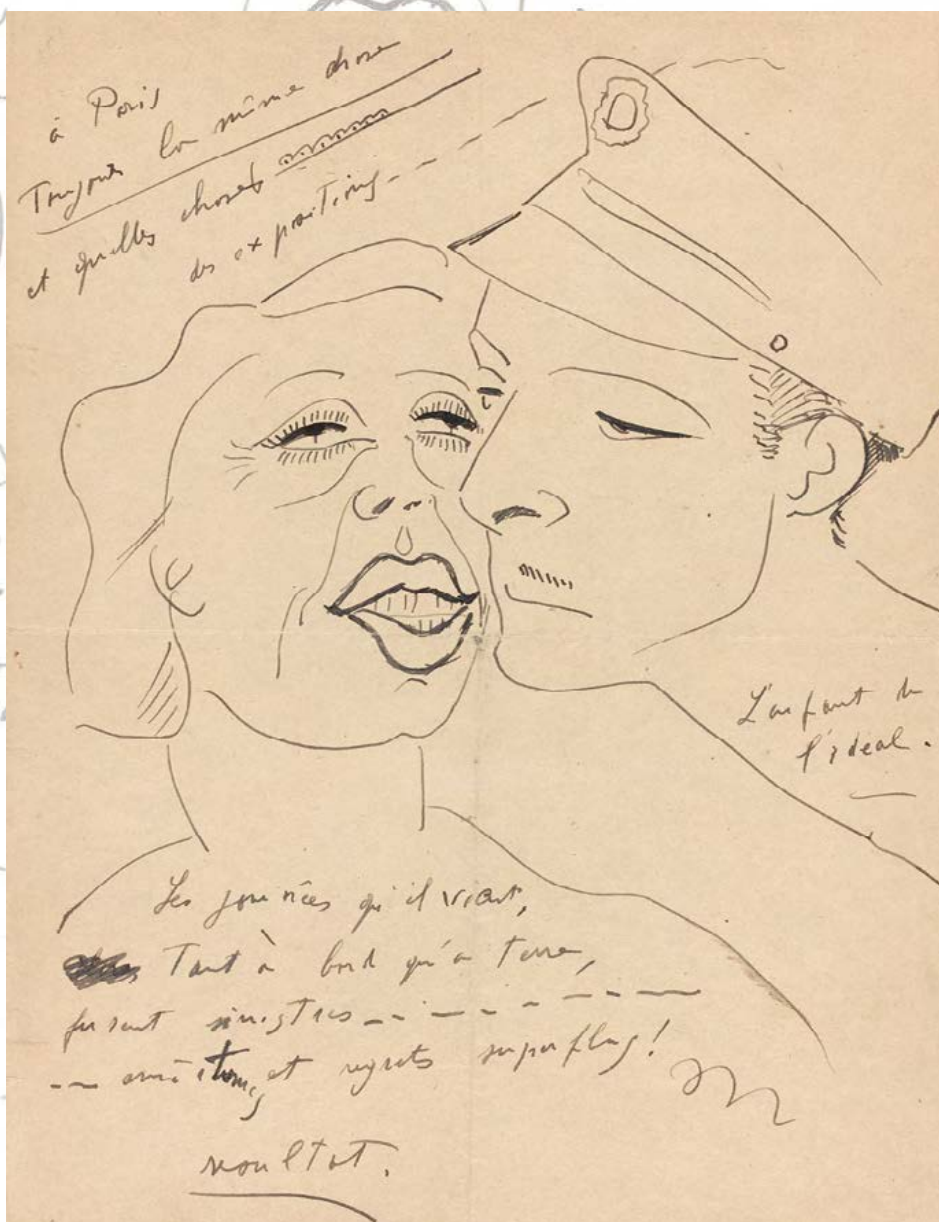 à Paris
Toujours la même chose
et quelles choses
des expositions
L'enfant de
l'ideal.
Les journées qu'il vient,
Tant à bord qu'à terre,
furent sinistres
et regrets superflus!